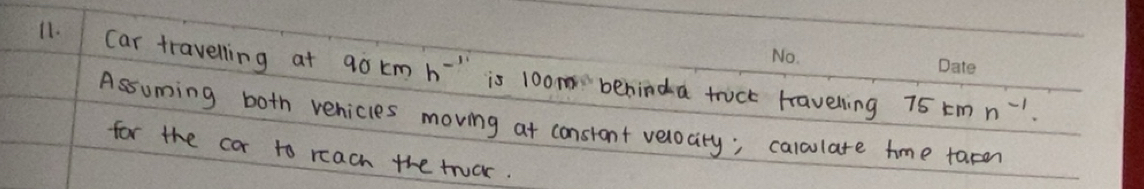 No. Date
11. Car travelling at 90 km h⁻¹ is 100m behind a truck travelling 75 km h⁻¹.
Assuming both vehicles moving at constant velocity; calculate time taken
for the car to reach the truck.